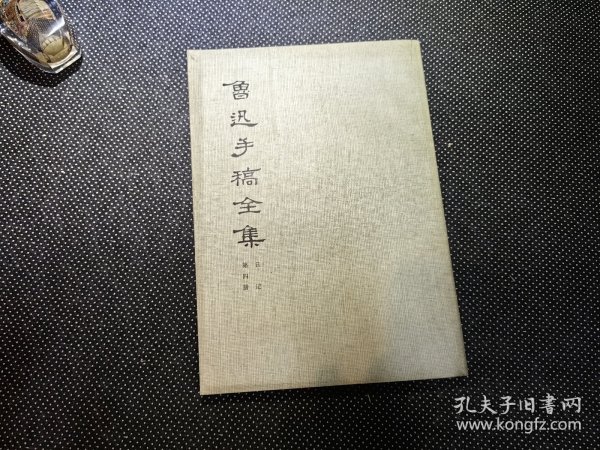 魯迅手稿全集
日记
第四册
孔夫子旧書网
www.kongfz.com